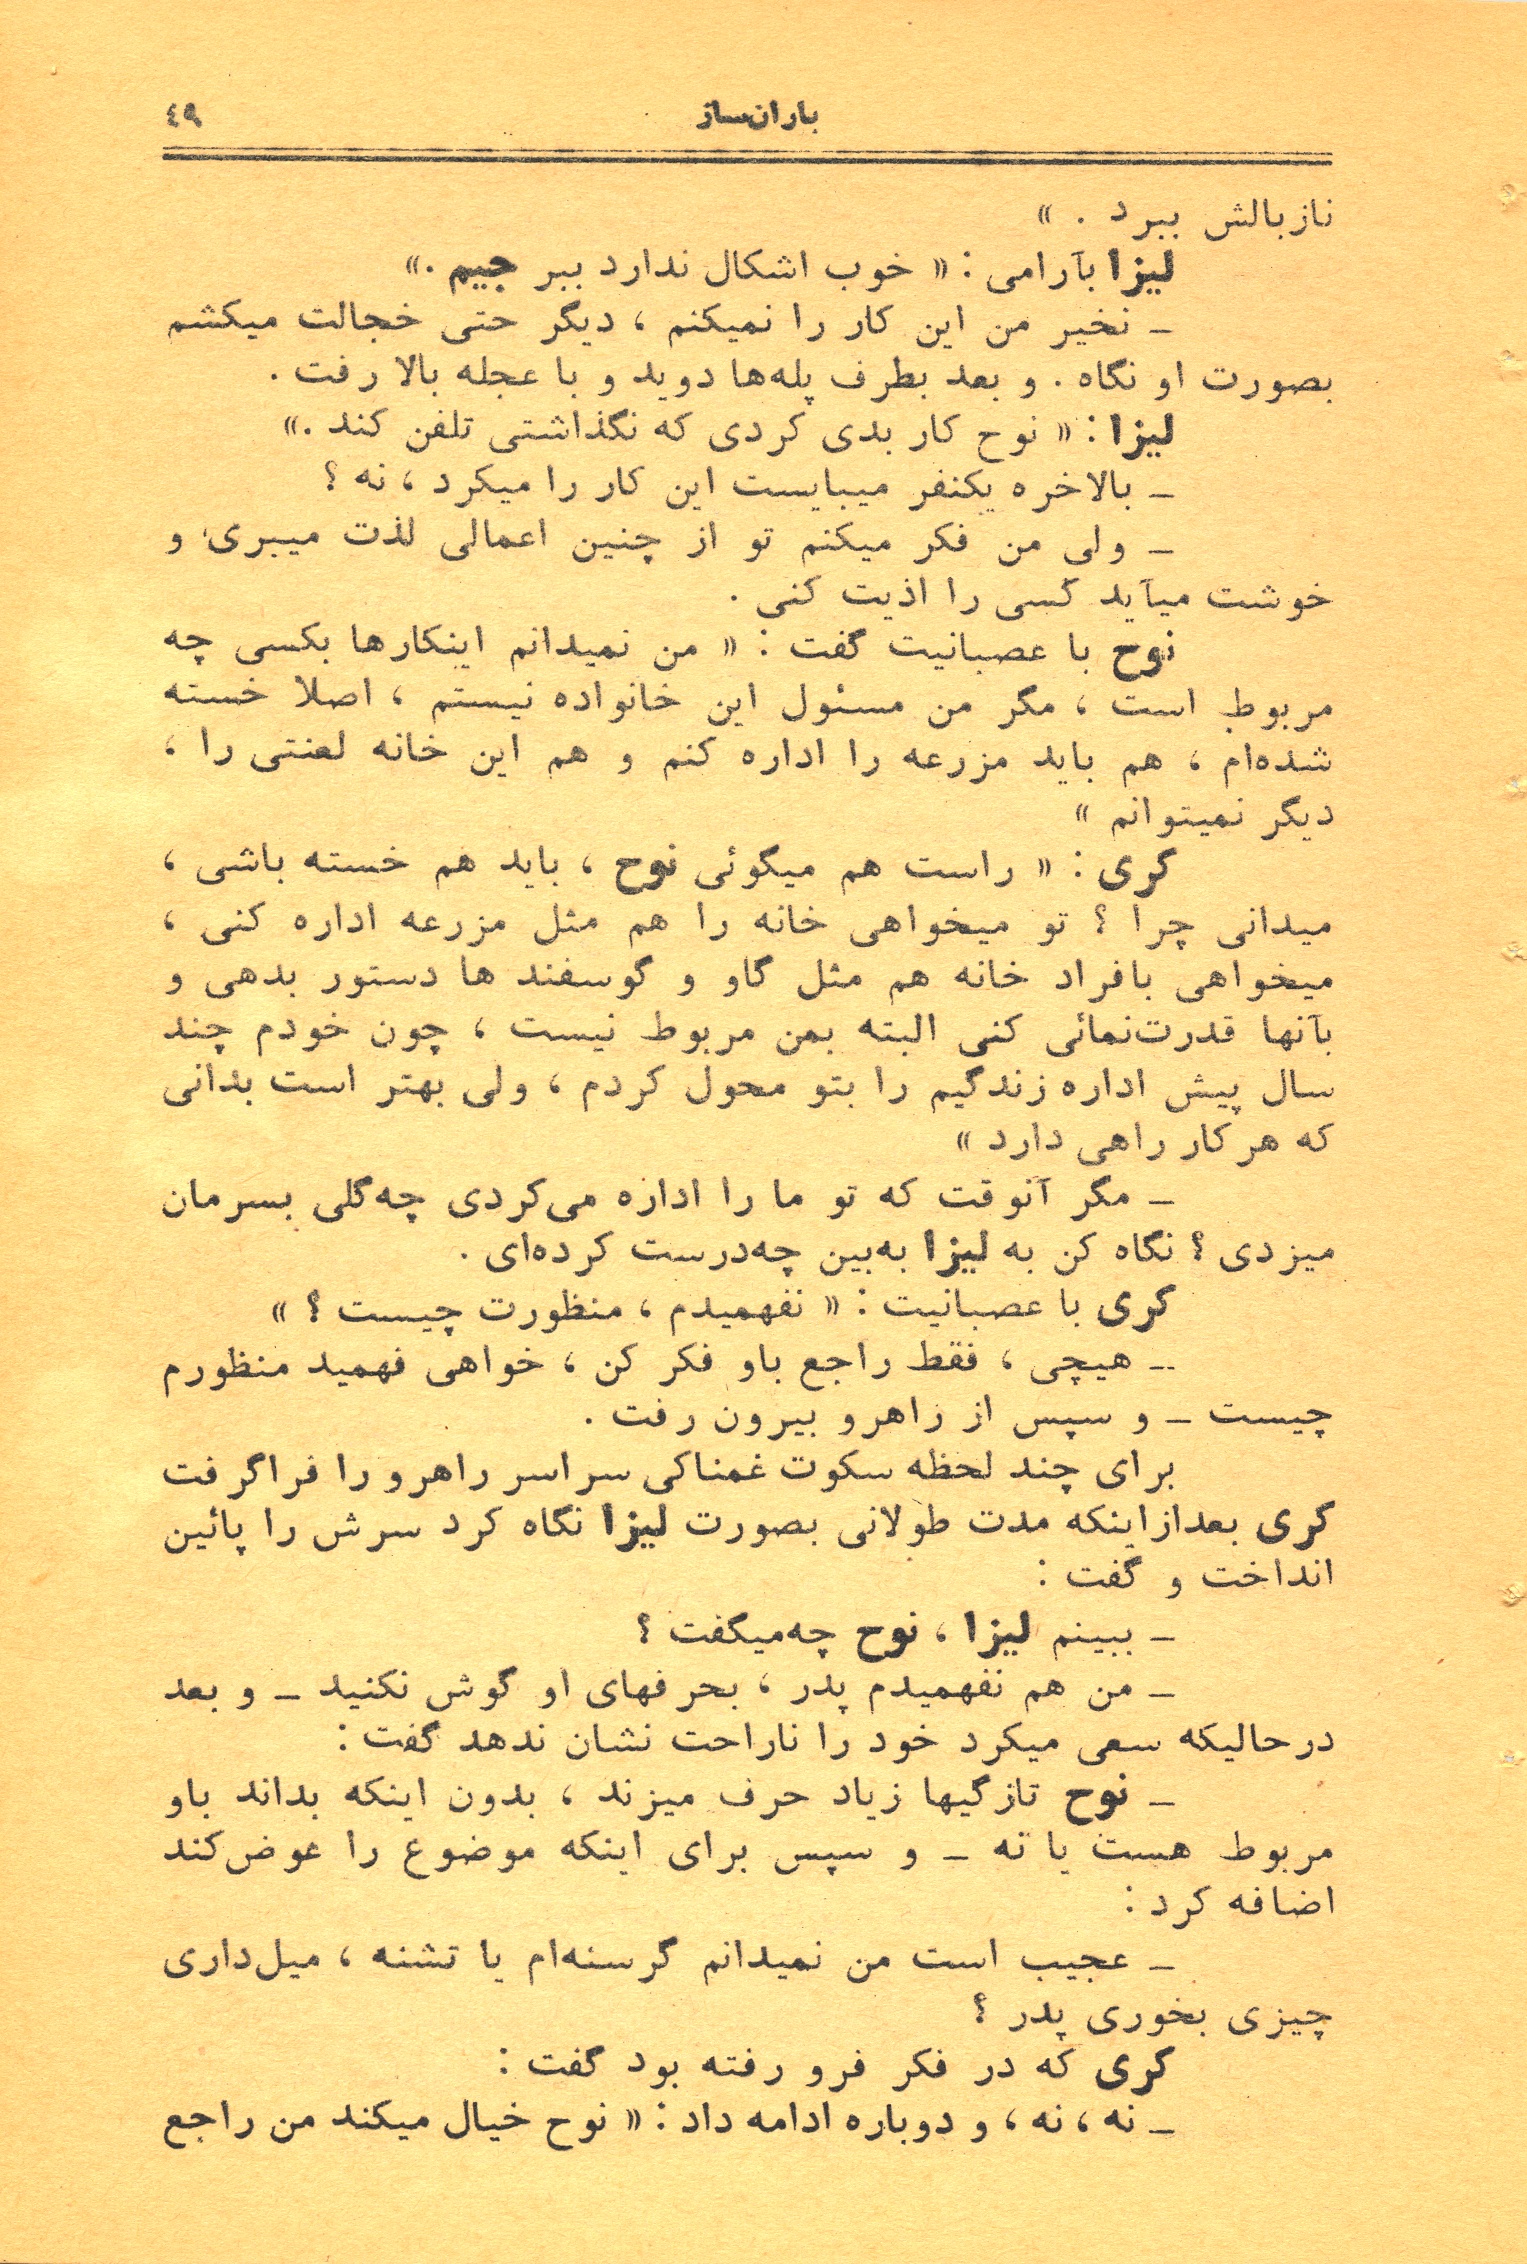 باران‌ساز ٤٩
نازبالش ببرد . »
لیزا بآرامی : « خوب اشکال ندارد ببر جیم .»
ـ نخیر من این کار را نمیکنم ، دیگر حتی خجالت میکشم
بصورت او نگاه . و بعد بطرف پله‌ها دوید و با عجله بالا رفت .
لیزا : « نوح کار بدی کردی که نگذاشتی تلفن کند .»
ـ بالاخره یکنفر میبایست این کار را میکرد ، نه ؟
ـ ولی من فکر میکنم تو از چنین اعمالی لذت میبری و
خوشت میآید کسی را اذیت کنی .
نوح با عصبانیت گفت : « من نمیدانم اینکارها بکسی چه
مربوط است ، مگر من مسئول این خانواده نیستم ، اصلا خسته
شده‌ام ، هم باید مزرعه را اداره کنم و هم این خانه لعنتی را ،
دیگر نمیتوانم »
کری : « راست هم میگوئی نوح ، باید هم خسته باشی ،
میدانی چرا ؟ تو میخواهی خانه را هم مثل مزرعه اداره کنی ،
میخواهی بافراد خانه هم مثل گاو و گوسفند ها دستور بدهی و
بآنها قدرت‌نمائی کنی البته بمن مربوط نیست ، چون خودم چند
سال پیش اداره زندگیم را بتو محول کردم ، ولی بهتر است بدانی
که هر کار راهی دارد »
ـ مگر آنوقت که تو ما را اداره می‌کردی چه‌گلی بسرمان
میزدی ؟ نگاه کن به لیزا به‌بین چه‌درست کرده‌ای .
کری با عصبانیت : « نفهمیدم ، منظورت چیست ؟ »
ـ هیچی ، فقط راجع باو فکر کن ، خواهی فهمید منظورم
چیست ـ و سپس از راهرو بیرون رفت .
برای چند لحظه سکوت غمناکی سراسر راهرو را فراگرفت
کری بعدازاینکه مدت طولانی بصورت لیزا نگاه کرد سرش را پائین
انداخت و گفت :
ـ ببینم لیزا ، نوح چه‌میگفت ؟
ـ من هم نفهمیدم پدر ، بحرفهای او گوش نکنید ـ و بعد
درحالیکه سعی میکرد خود را ناراحت نشان ندهد گفت :
ـ نوح تازگیها زیاد حرف میزند ، بدون اینکه بداند باو
مربوط هست یا نه ـ و سپس برای اینکه موضوع را عوض‌کند
اضافه کرد :
ـ عجیب است من نمیدانم گرسنه‌ام یا تشنه ، میل‌داری
چیزی بخوری پدر ؟
کری که در فکر فرو رفته بود گفت :
ـ نه ، نه ، و دوباره ادامه داد : « نوح خیال میکند من راجع